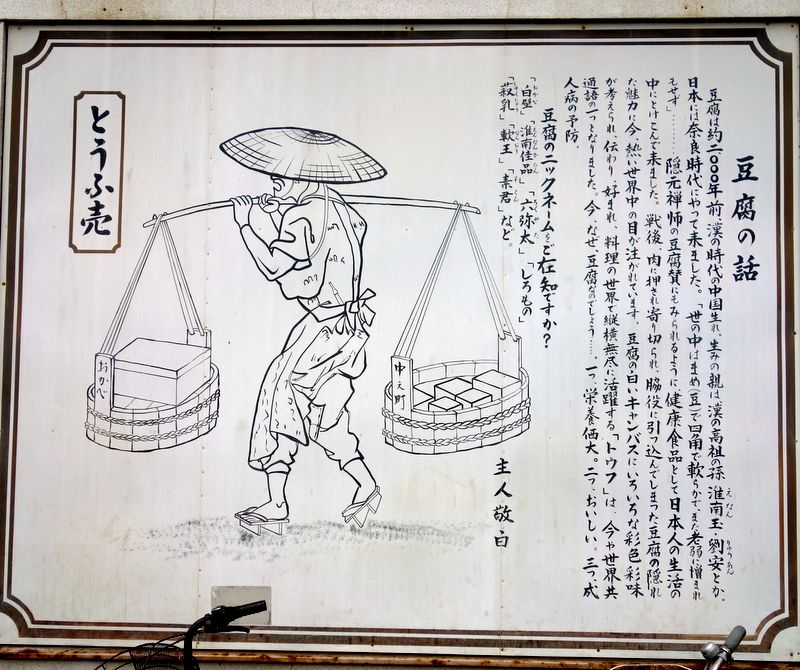 豆腐の話
豆腐は約二〇〇〇年前、漢の時代の中国生れ、生みの親は、漢の高祖の孫 淮南王・劉安とか。
日本には奈良時代にやって来ました。「世の中はまめ(豆)で四角で軟らかで、また老弱に憎まれ
もせず」……… 隠元禅師の豆腐賛にもみられるように健康食品として日本人の生活の
中にとけこんで来ました。戦後、肉に押され寄り切られ、脇役に引っ込んでしまった豆腐の隠れ
た魅力に今、熱い世界中の目が注がれています。豆腐の白いキャンバスにいろいろな彩色 彩味
が考えられ、伝わり、好まれ、料理の世界で縦横無尽に活躍する「トウフ」は、今や世界共
通語の一つとなりました。今、なぜ、豆腐なのでしょう…… 一つ、栄養価大。二つ、おいしい。三つ、成
人病の予防。
豆腐のニックネームをご在知ですか?
「白壁」「淮南佳品」「六弥太」「しろもの」
「萩乳」「軟王」「素君」など。
主人敬白
とうふ売
おかべ
中え町